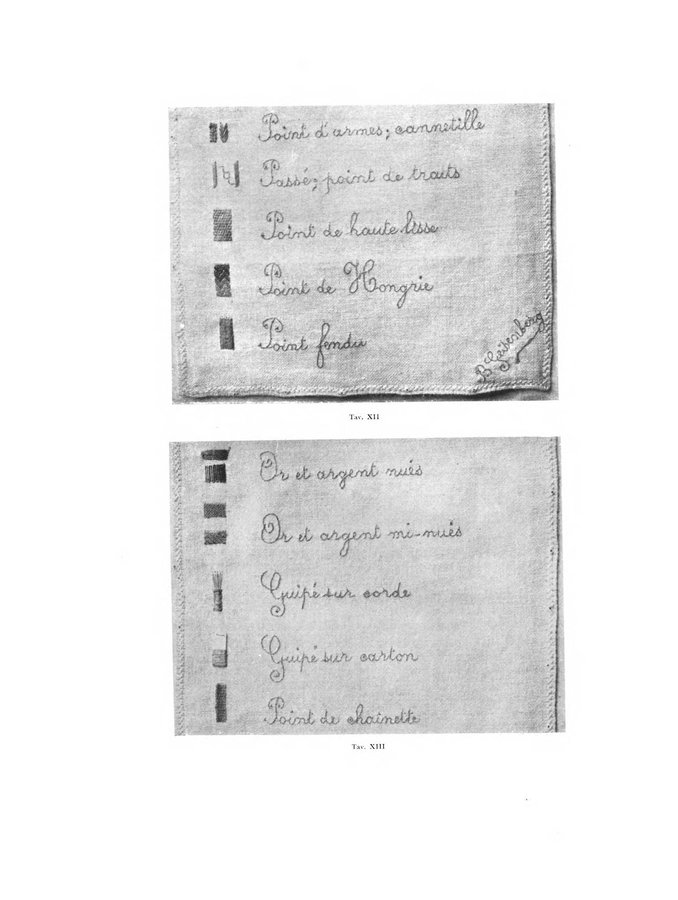 Point d'armes; cannetille
Passé; point de traits
Point de haute lisse
Point de Hongrie
Point fendu
Tav. XII
Or et argent nués
Or et argent mi-nués
Guipé sur corde
Guipé sur carton
Point de chainette
Tav. XIII